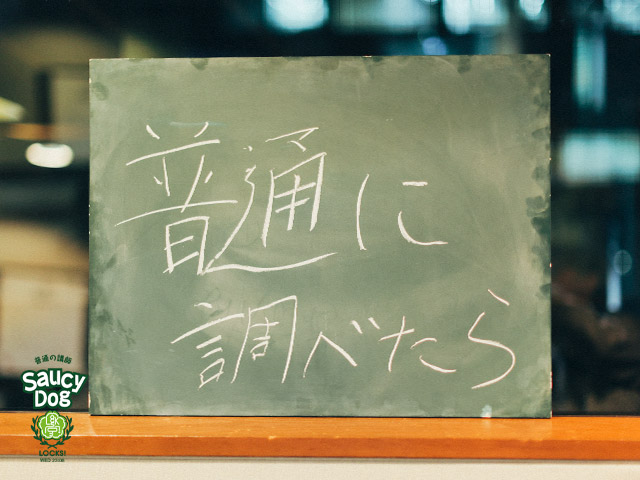 普通に
調べたら
普通の講師
Saucy
Dog
LOCKS!